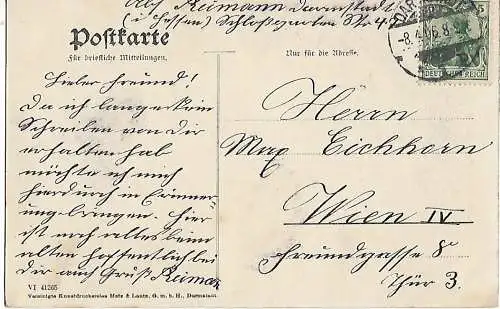 Abs. Reimann Darmstadt
i/Hessen) Schloßgarten Str 4
Postkarte
Für briefliche Mitteilungen.
Nur für die Adresse.
-8.4.
DEUTSCHES REICH
Lieber Freund!
Da ich lange kein
Schreiben von Dir
erhalten hab
möchte ich mich
hierdurch in Erinner
ung bringen. Hier
ist noch alles beim
alten hoffentlich bei
dir auch Gruß Reimann
Herrn
Max Eichhorn
Wien IV
Freundgasse 8
Thür 3.
VI 41365
Vereinigte Kunstdruckereien Metz & Lautz, G. m. b. H., Darmstadt.